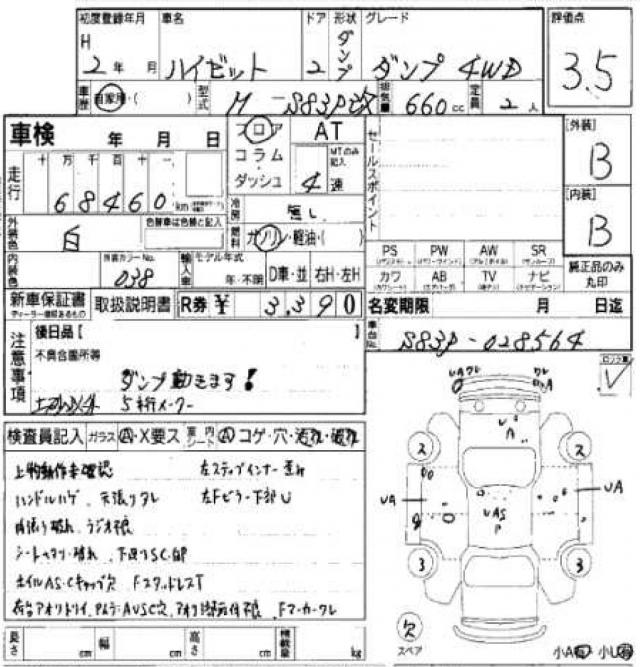 初度登録年月 車名 ドア 形状 グレード 評価点
H 2年 月 ハイゼット 2 ダンプ ダンプ 4WD 3.5
車歴 自家用・( ) 型式 M-S83P改 排気量 660cc 定員 2人
車検 年 月 日 フロア AT セールスポイント [外装]
コラム・ MTのみ記入 B
走行 十 万 千 百 十 一 ダッシュ 4速
68460km 冷房 無し [内装]
外装色 白 色替車は色替と記入 燃料 ガソリン・軽油・( ) B
PS PW AW SR
内装色 外装カラーNo. 038 輸入車 モデル年式 年・不明 D車・並 右H・左H
カワ AB TV ナビ 純正品のみ丸印
新車保証書 取扱説明書 R券 ¥ 3,390 名変期限 月 日迄
ディーラー捺印あるもの
注意事項 後日品[ ] 車台No. S83P-028564
不具合箇所等
ダンプ動きます!
5桁メーター
検査員記入 ガラス A・X要ス 室内シート A コゲ・穴・汚れ・破れ
上物動作未確認 左ステップインナー歪み
ハンドルハゲ、天張りタレ 左Fピラー下部U
内張り破れ、ラジオ不良
下廻りSC・錆
ホイルAS・Cキャップ欠 FスタッドレスT
長さ cm 幅 cm 高さ cm 積載量 kg
UA A
U A
2 2
UA UA
UAS
P
3 3
欠
スペア 小A 小U